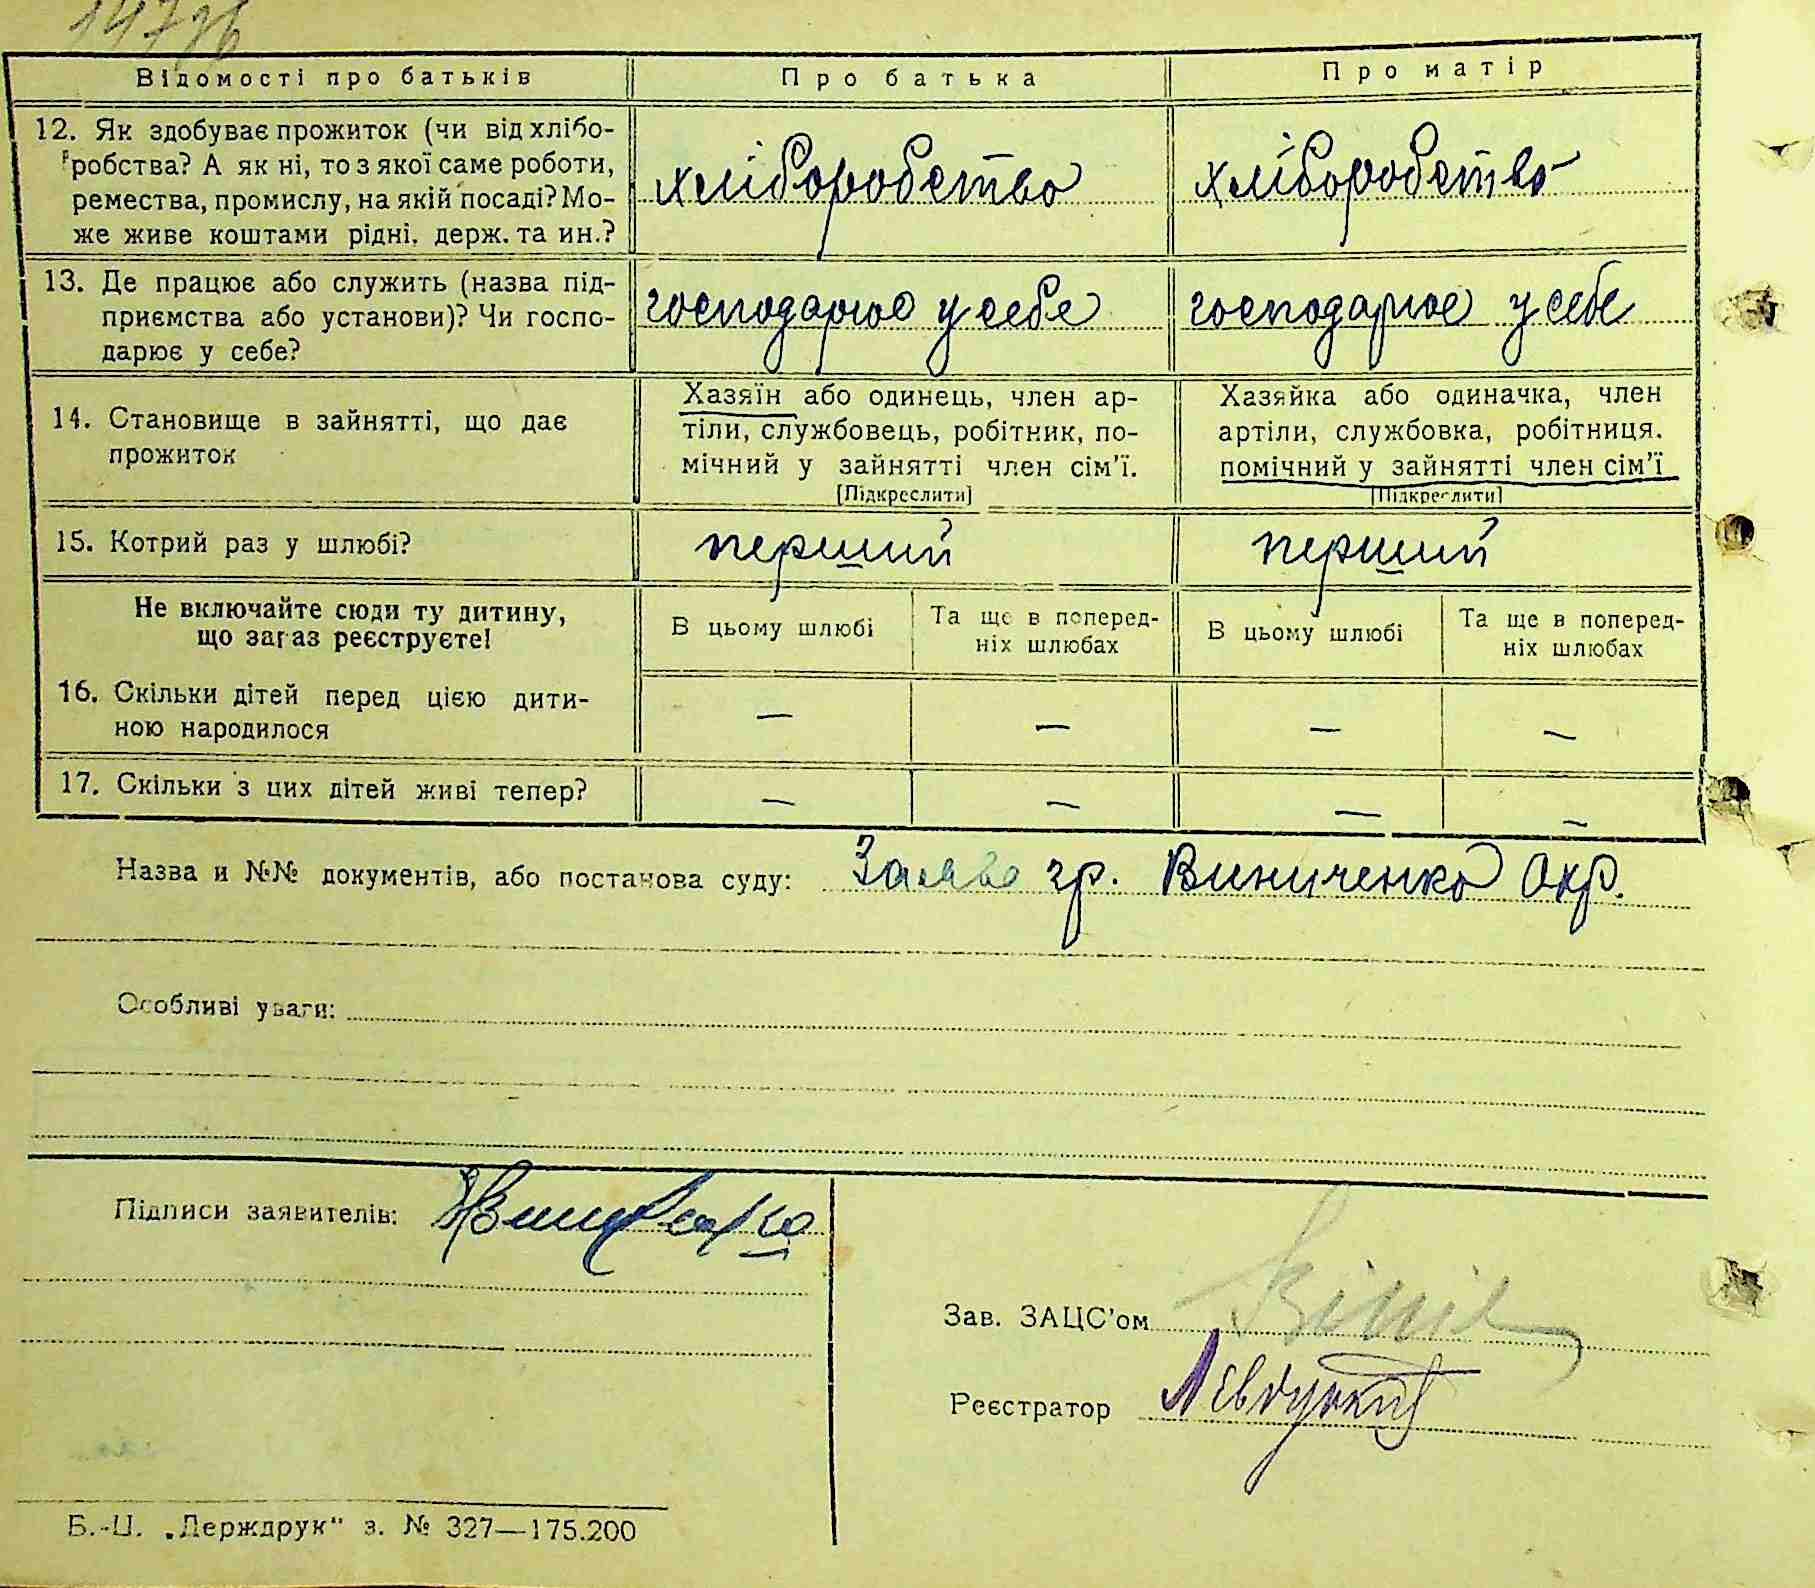 14776
Відомості про батьків
Про батька
Про матір
12. Як здобуває прожиток (чи від хлібо-
робства? А як ні, то з якої саме роботи,
ремества, промислу, на якій посаді? Мо-
же живе коштами рідні, держ. та ин.?
хліборобство
хліборобство
13. Де працює або служить (назва під-
приємства або установи)? Чи госпо-
дарює у себе?
господарює у себе
господарює у себе
14. Становище в зайнятті, що дає
прожиток
Хазяїн або одинець, член ар-
тіли, службовець, робітник, по-
мічний у зайнятті член сім'ї.
[Підкреслити]
Хазяйка або одиначка, член
артіли, службовка, робітниця.
помічний у зайнятті член сім'ї
[Підкреслити]
15. Котрий раз у шлюбі?
перший
перший
Не включайте сюди ту дитину,
що зараз реєструєте!
В цьому шлюбі
Та ще в поперед-
ніх шлюбах
В цьому шлюбі
Та ще в поперед-
ніх шлюбах
16. Скільки дітей перед цією дити-
ною народилося
— — — —
17. Скільки з цих дітей живі тепер?
— — — —
Назва и №№ документів, або постанова суду: Заява гр. Виниченко Охр.
Особливі уваги:
Підписи заявителів:
Зав. ЗАЦС'ом
Реєстратор
Б.-Ц. „Держдрук" з. № 327—175.200